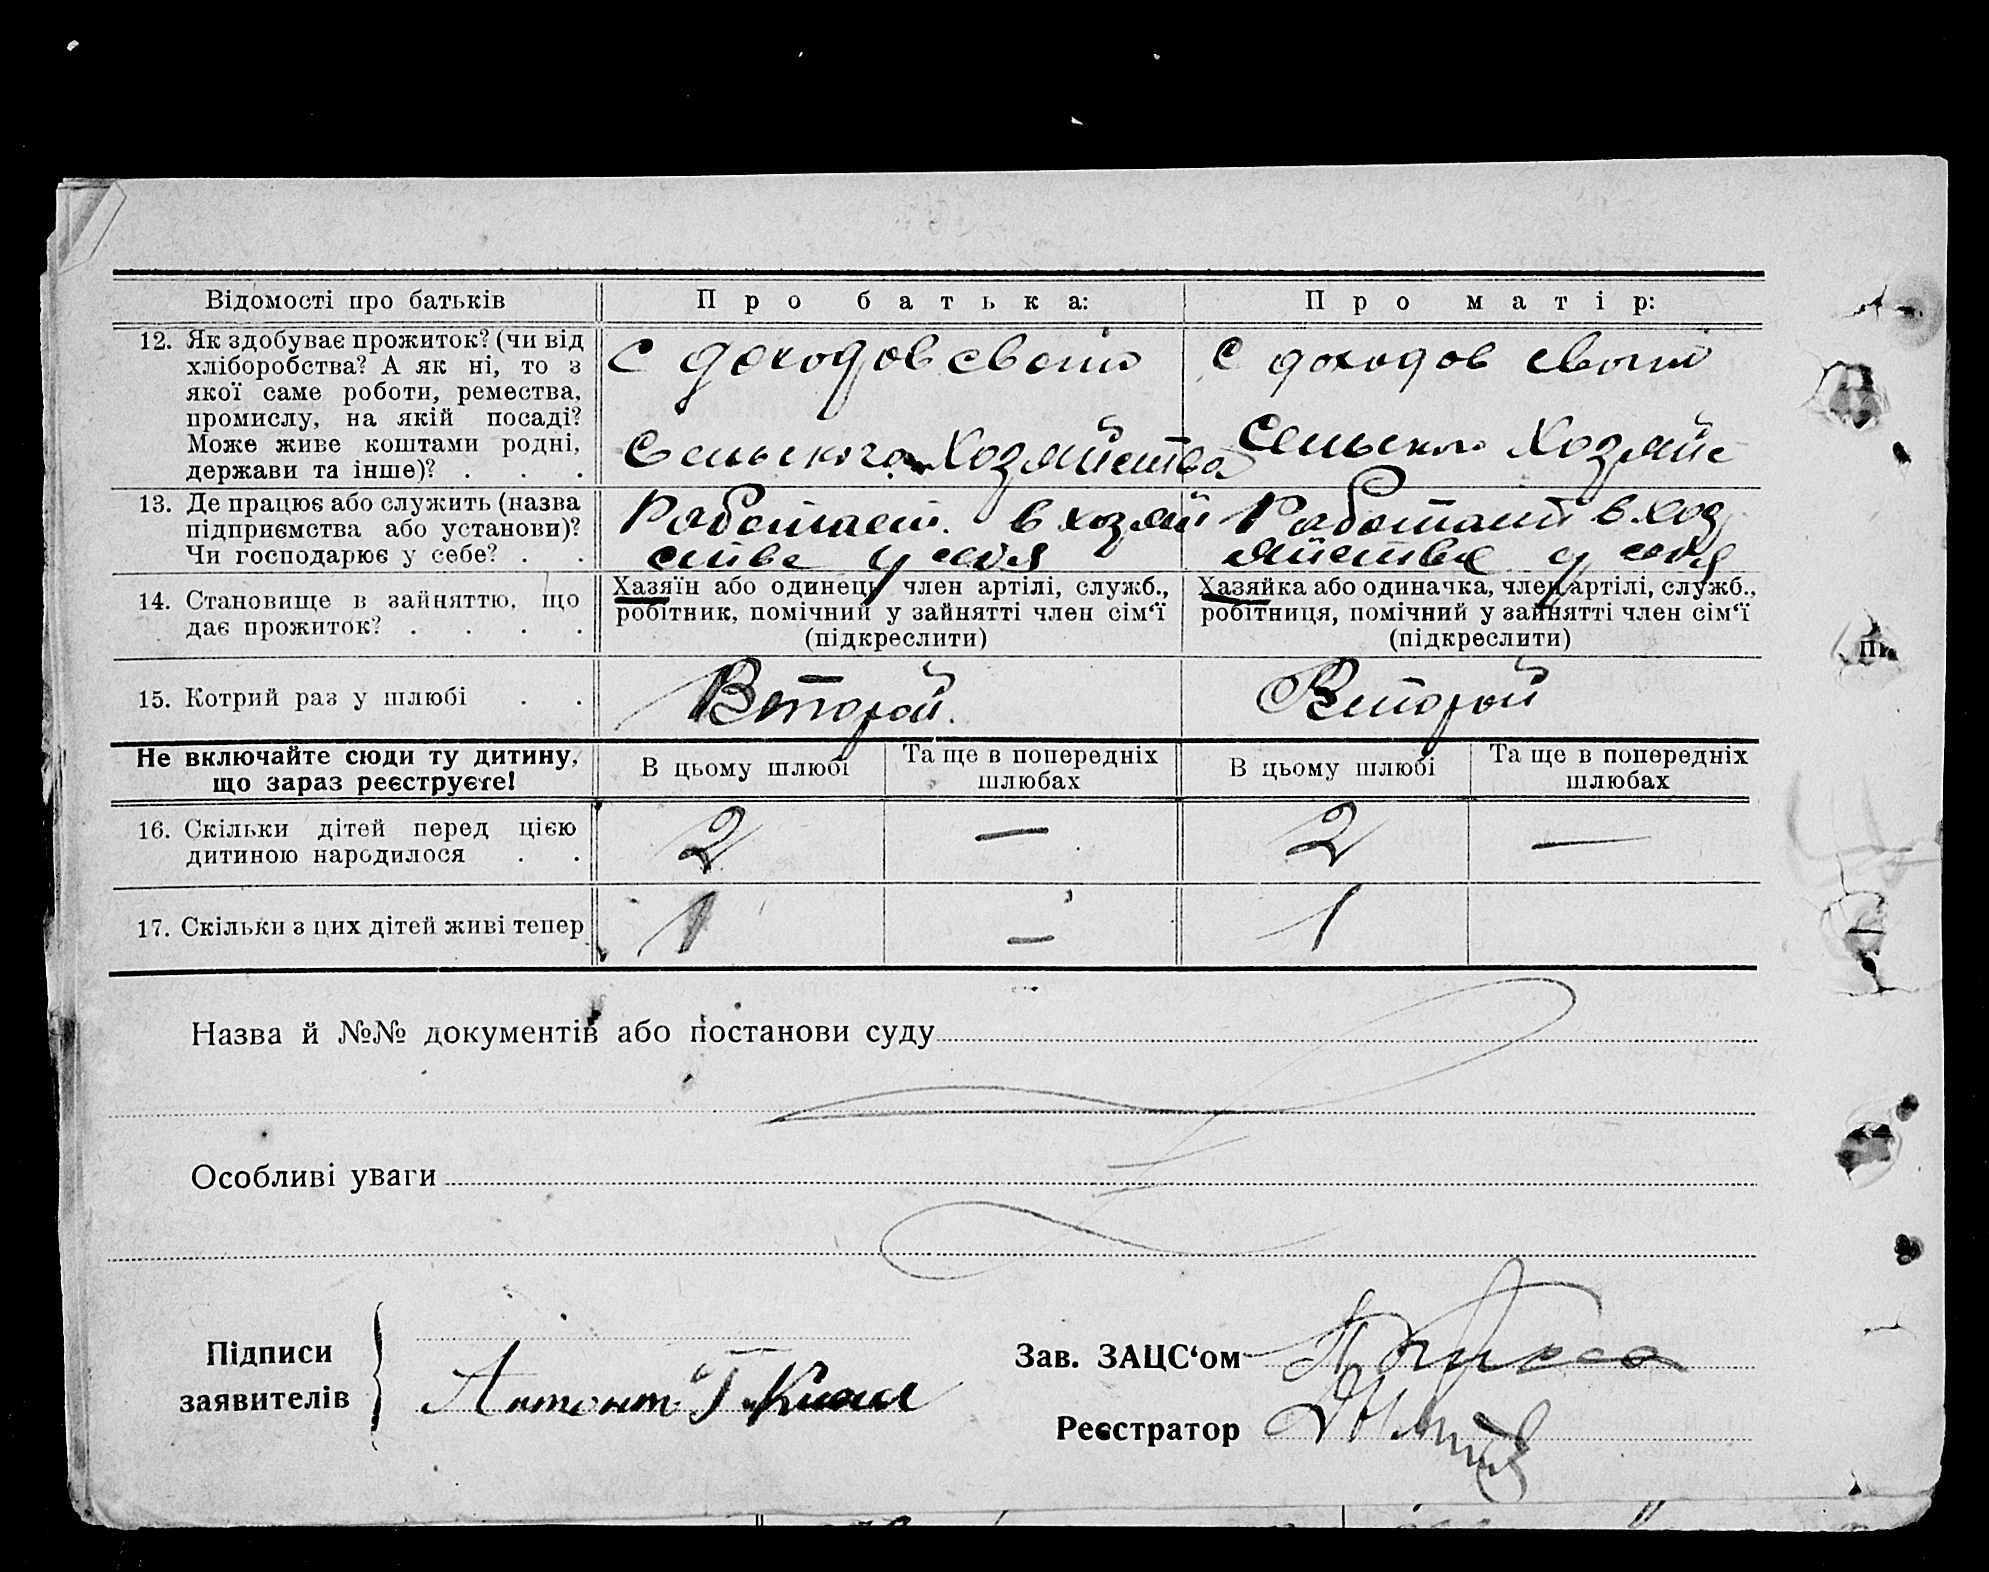 Відомості про батьків
Про батька:
Про матір:
12. Як здобуває прожиток? (чи від
хліборобства? А як ні, то з
якої саме роботи, ремества,
промислу, на якій посаді?
Може живе коштами родні,
держави та інше)? . . .
С доходов своего
Сельского Хозяйства
С доходов своего
Сельского Хозяйс
13. Де працює або служить (назва
підприємства або установи)?
Чи господарює у себе? . .
Работает в хозяй
стве у себя
Работает в хоз
яйстве у себя
14. Становище в зайняттю, що
дає прожиток? . . . .
Хазяїн або одинець, член артілі, служб.,
робітник, помічний у зайнятті член сім‘ї
(підкреслити)
Хазяйка або одиначка, член артілі, служб.,
робітниця, помічний у зайнятті член сім‘ї
(підкреслити)
15. Котрий раз у шлюбі . .
Второй
Второй
Не включайте сюди ту дитину,
що зараз реєструєте!
В цьому шлюбі
Та ще в попередніх
шлюбах
В цьому шлюбі
Та ще в попередніх
шлюбах
16. Скільки дітей перед цією
дитиною народилося . .
2 — 2 —
17. Скільки з цих дітей живі тепер
1 — 1
Назва й №№ документів або постанови суду
Особливі уваги
Підписи
заявителів
Зав. ЗАЦС‘ом
Реєстратор